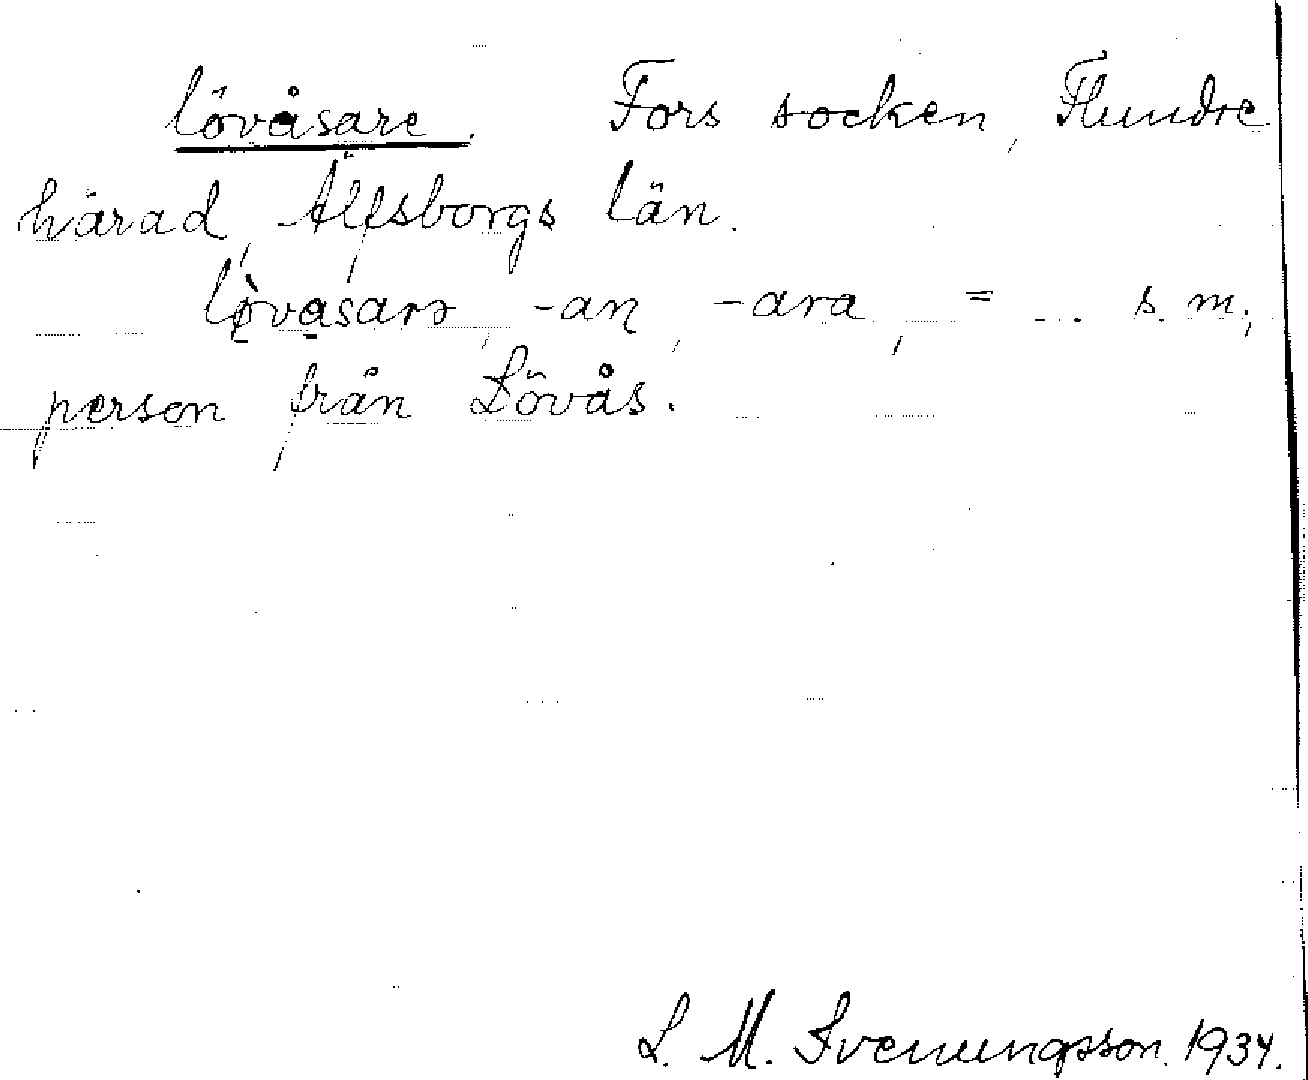 lövåsare. Fors socken, Flundre
härad, Älfsborgs län.
lø̀vasarə, -an, -ara, = ... s. m;
person från Lövås.
L. M. Svenungsson. 1934.